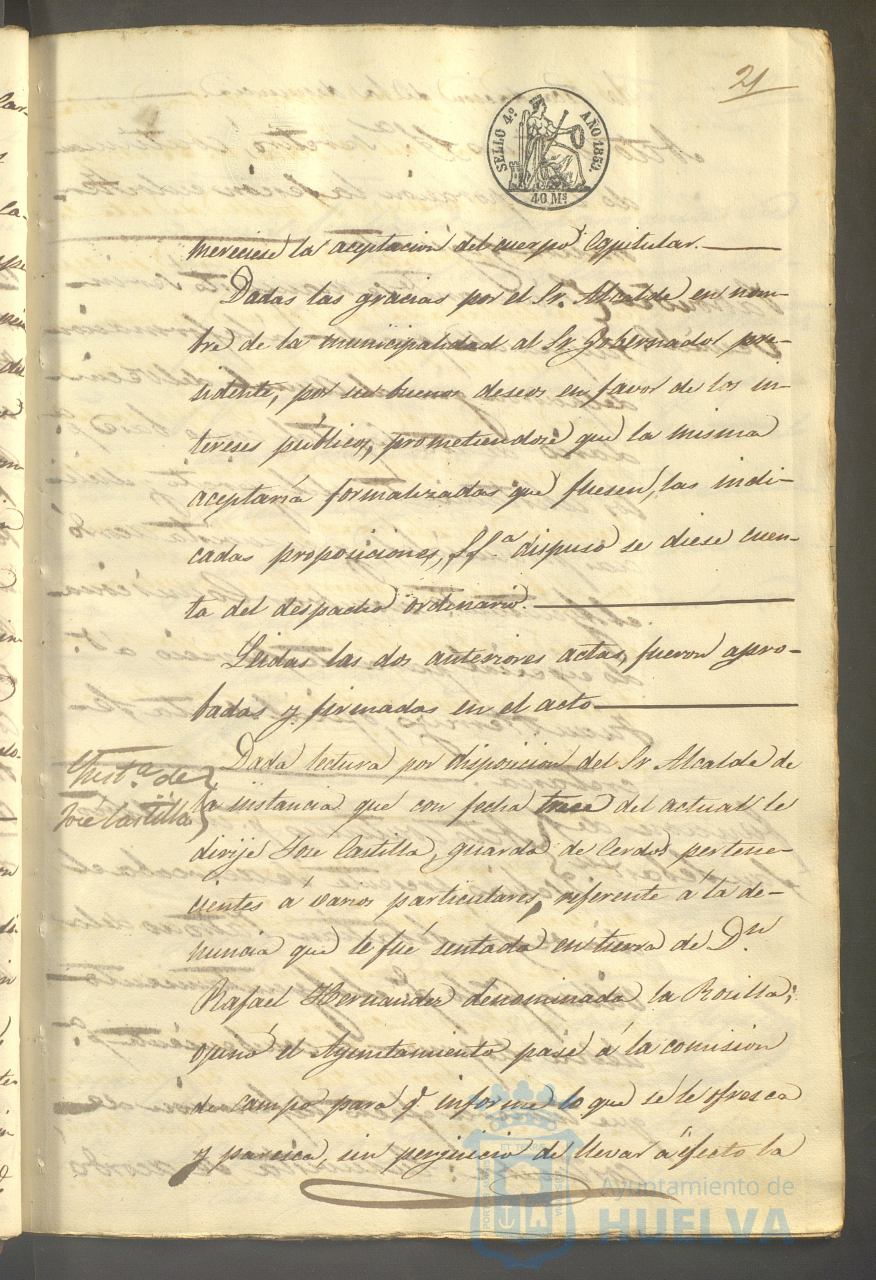 21
SELLO 4º. AÑO 1859.
40 Ms.
mereciese la aceptacion del cuerpo Capitular.
Dadas las gracias por el Sr. Alcalde en nom-
bre de la municipalidad al Sr. Gobernador pre-
sidente, por sus buenos deseos en favor de los in-
tereses públicos, prometiendose que la misma
aceptaría formalizadas que fuesen, las indi-
cadas proposiciones, S.Sª dispuso se diese cuen-
ta del despacho ordinario.
Leidas las dos anteriores actas, fueron apro-
badas y firmadas en el acto
Instª de
José Castilla
Dada lectura por disposicion del Sr Alcalde de
la instancia que con fecha trece del actual le
dirije José Castilla, guarda de Cerdos pertene-
cientes á varios particulares, referente á la de-
nuncia que le fué sentada en tierra de Dn
Rafael Hernandez denominada la Rosilla;
opinó el Ayuntamiento pase á la comision
de campo para q informe lo que se le ofresca
y paresca, sin perjuicio de llevar á efecto la
Ayuntamiento de
HUELVA